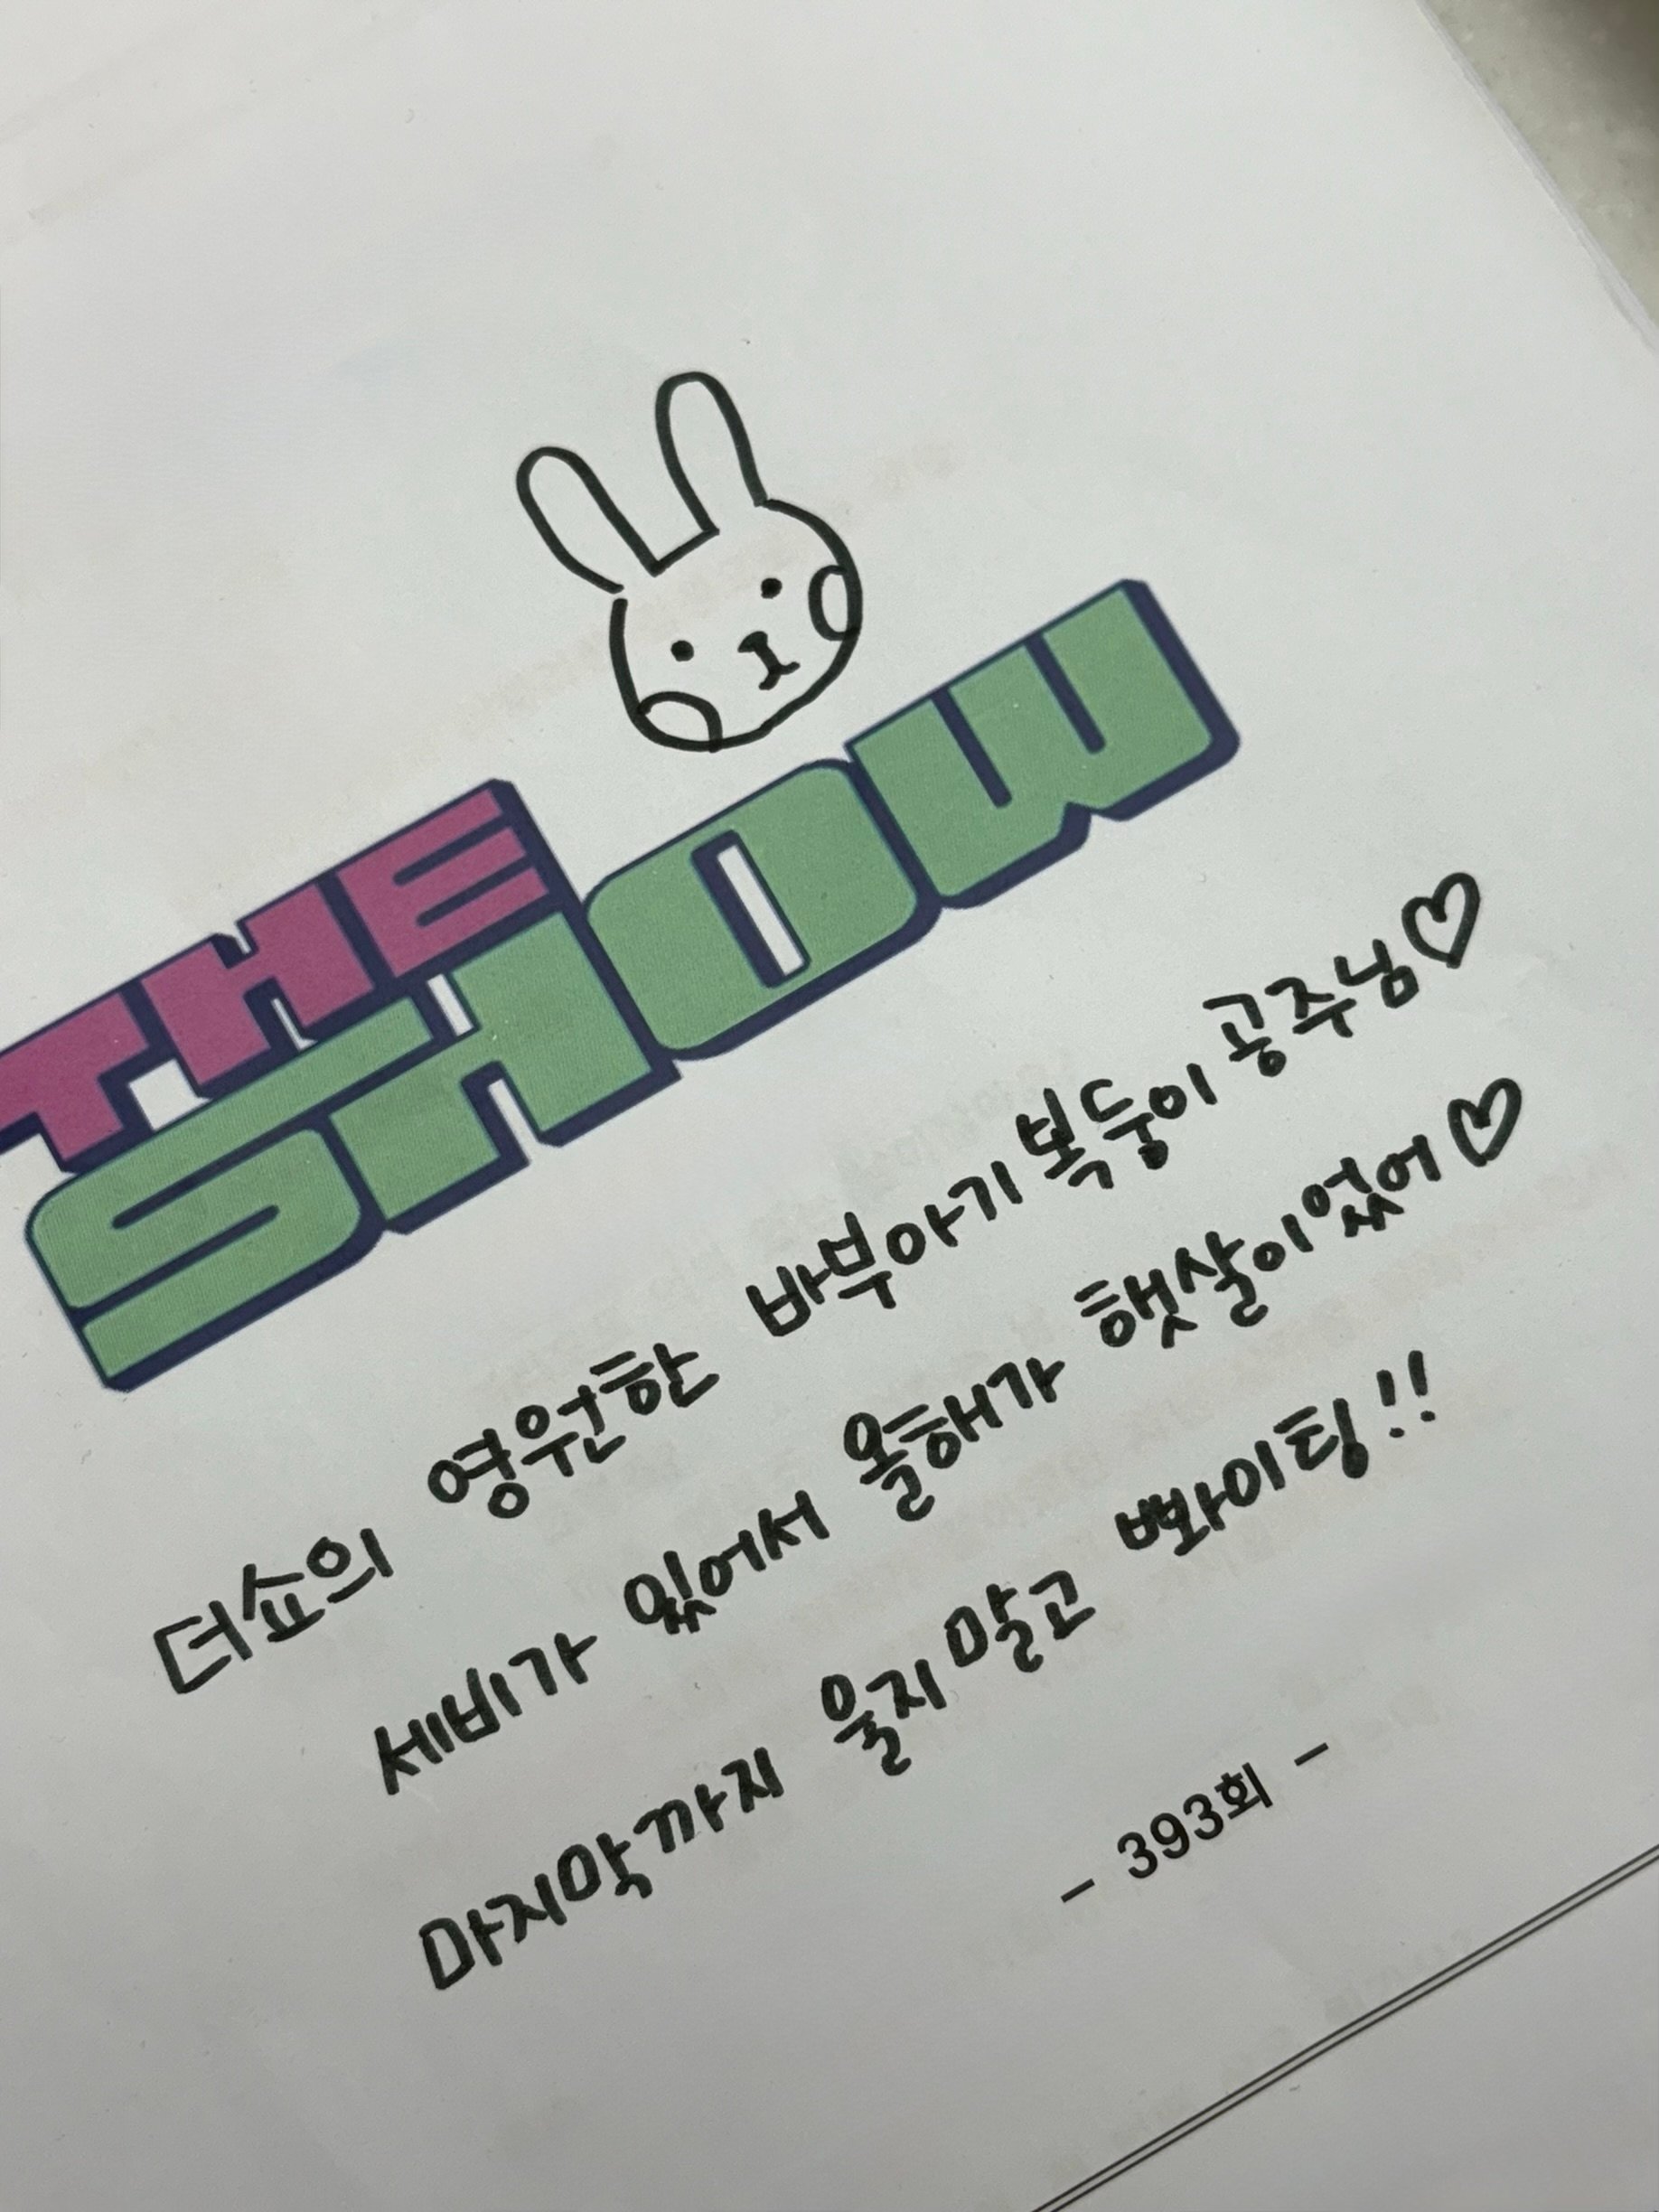 THE
SHOW
더쇼의 영원한 바부아기복둥이공주님♡
세비가 있어서 올해가 햇살이었어♡
마지막까지 울지말고 뽜이팅!!
- 393회 -